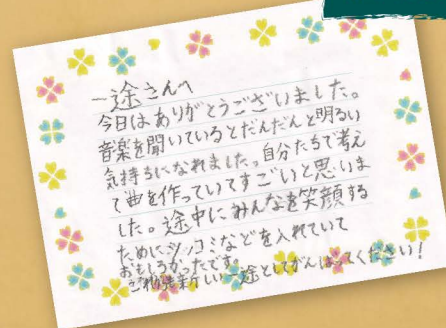 一途さんへ
今日はありがとうございました。
音楽を聞いているとだんだんと明るい
気持ちになれました。自分たちで考え
て曲を作っていてすごいと思いま
した。途中にみんなを笑顔する
ためにツッコミなどを入れていて
おもしろかったです。
新しい一途としてがんばってください！